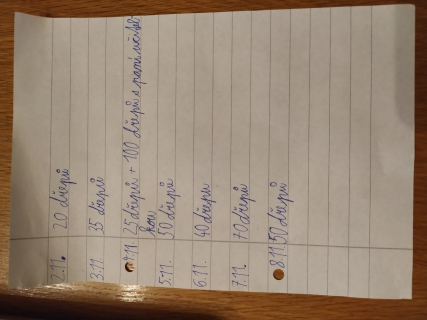 2.11. 20 dřepů
3.11. 35 dřepů
4.11. 25 dřepů + 100 dřepů s paní učitel
kou
5.11. 50 dřepů
6.11. 40 dřepů
7.11. 70 dřepů
8.11 50 dřepů